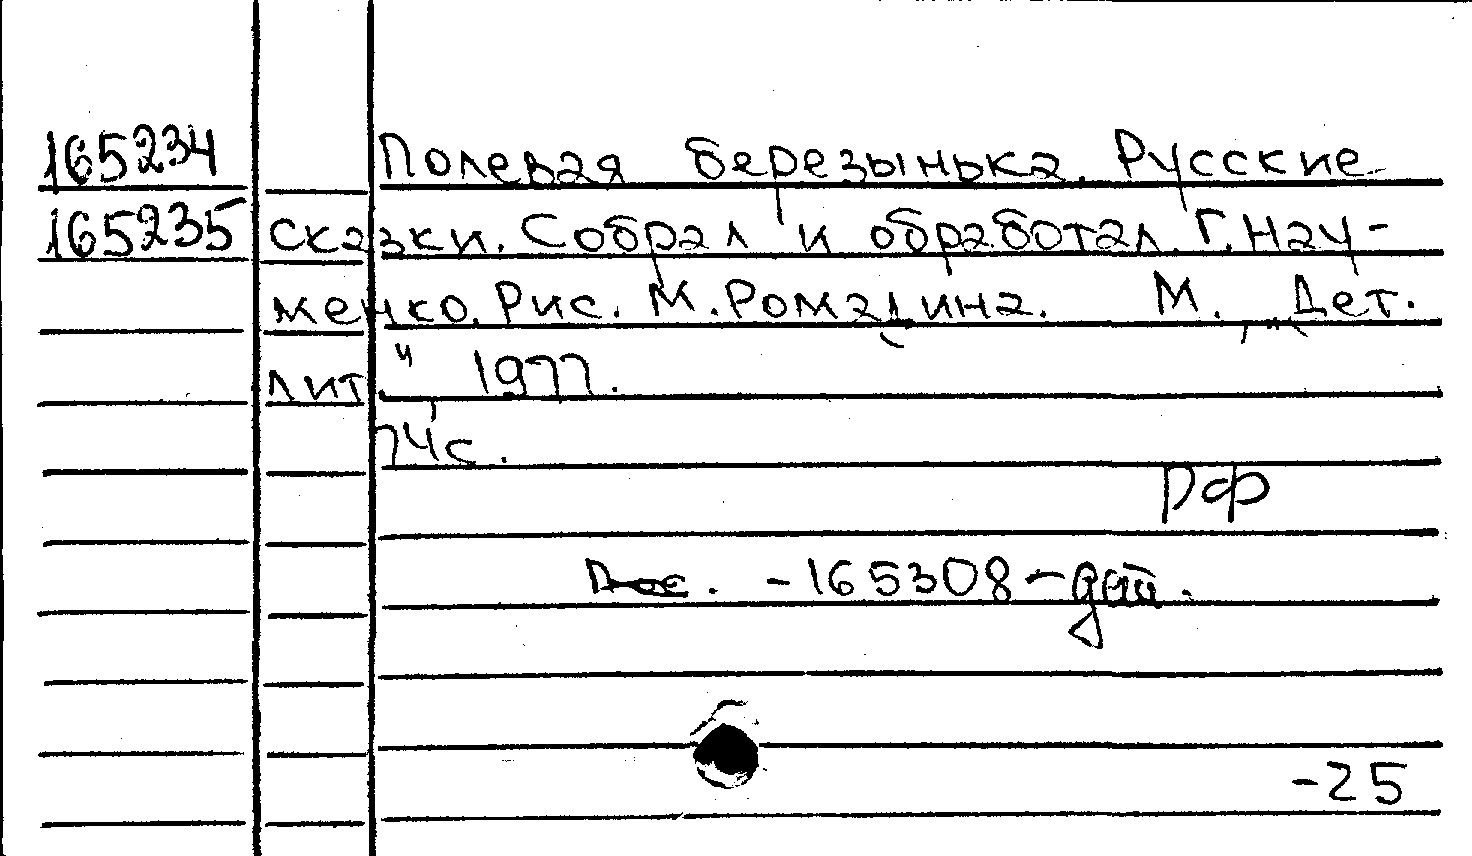 165234 Полевая березынька. Русские
165235 сказки. Собрал и обработал Г. Нау-
менко. Рис. М. Ромадина. М. „Дет.
лит.", 1977.
74с.
РФ
- 165308 -
-25